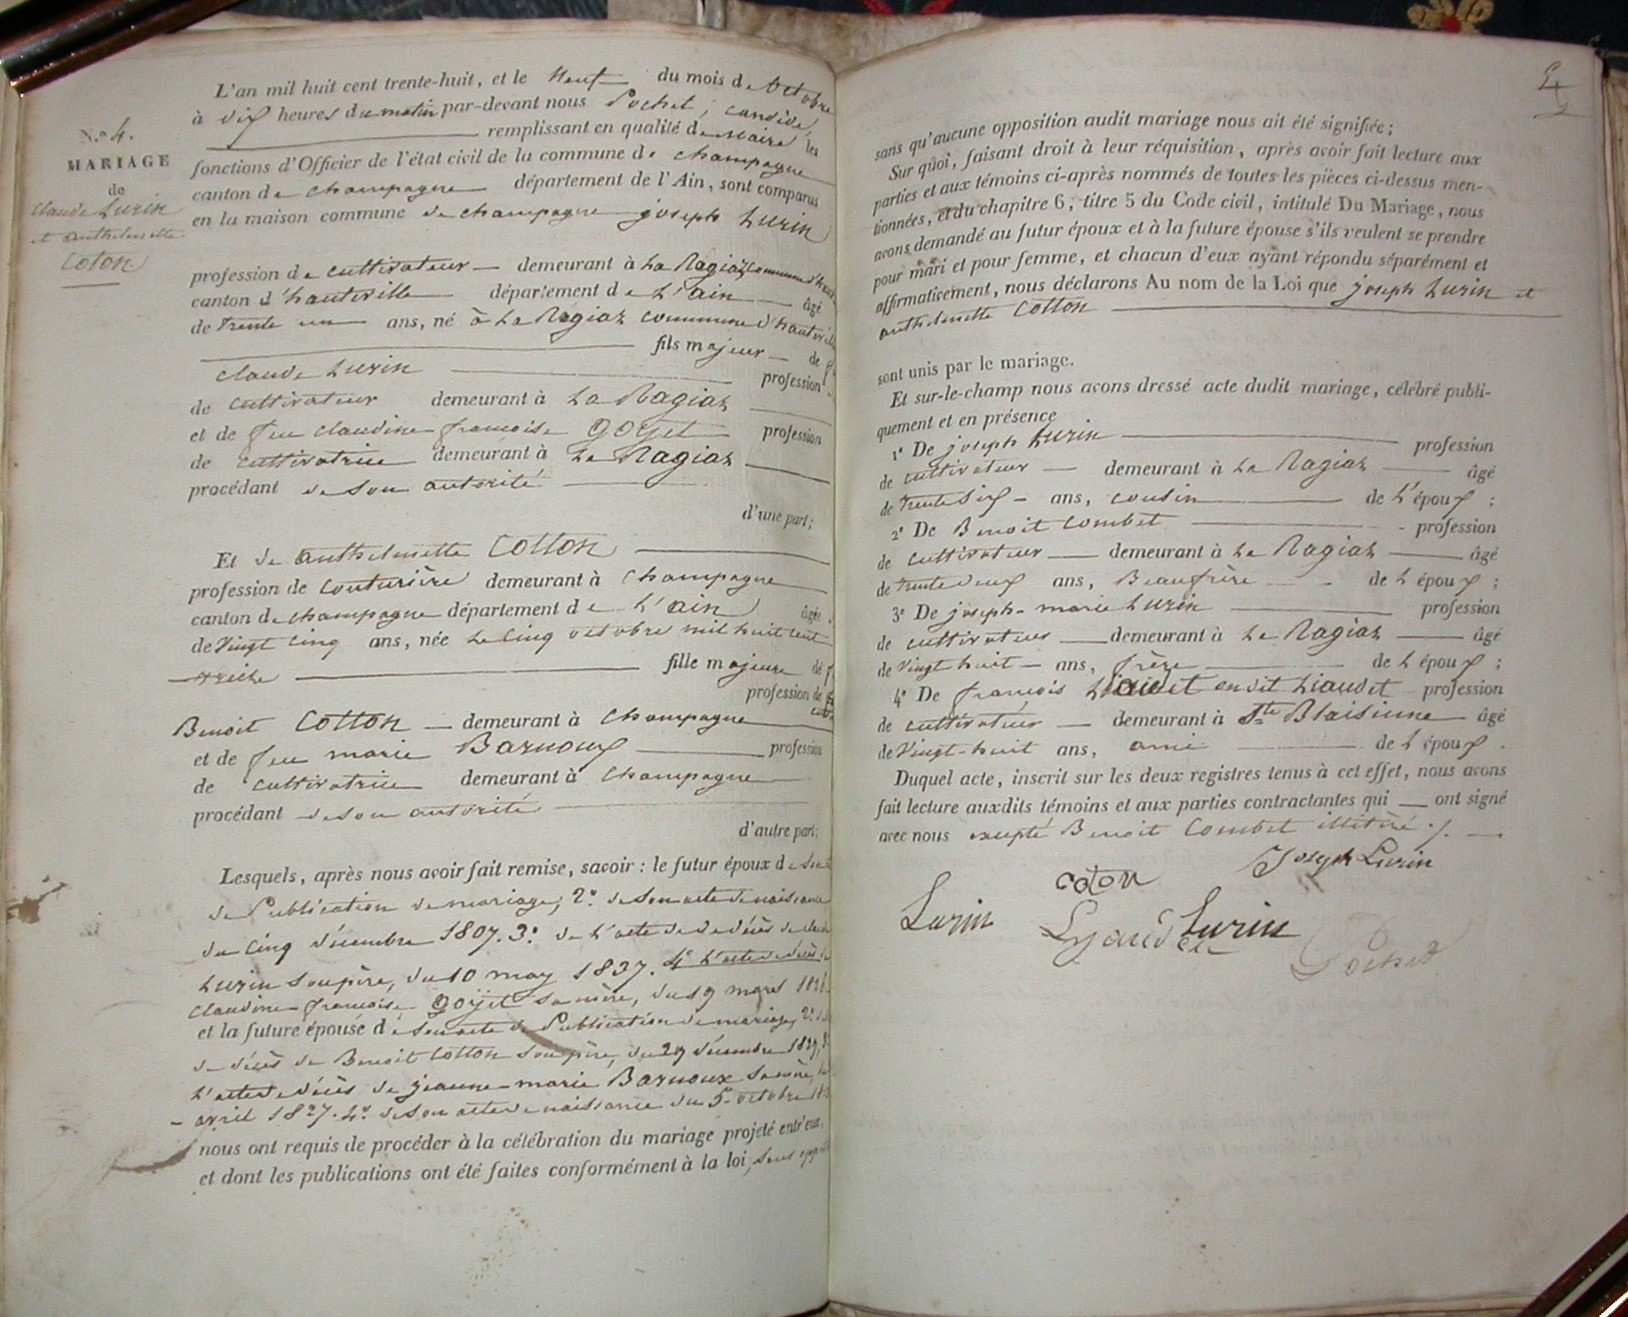 N.º 4.
MARIAGE
de
Claude Lurin
et anthelmette
Coton
L'an mil huit cent trente-huit, et le Neuf du mois de Octobre
à dix heures du matin par-devant nous Pochet, candide,
remplissant en qualité de Maire les
fonctions d'Officier de l'état civil de la commune de champagne
canton de champagne département de l'Ain, sont comparus
en la maison commune de champagne joseph Lurin
profession de cultivateur demeurant à La Ragiaz commune d'
canton d'hauteville département de L'ain âgé
de trente un ans, né à La Ragiaz commune d'hauteville
fils majeur de
claude Lurin profession
de cultivateur demeurant à La Ragiaz
et de feu claudine françoise goyet profession
de cultivatrice demeurant à La Ragiaz
procédant de son autorité
d'une part;
Et de anthelmette Cotton
profession de couturière demeurant à Champagne
canton de champagne département de L'ain âgée
de vingt cinq ans, née Le Cinq octobre mil huit cent
treize fille majeure de
profession de
Benoit Cotton demeurant à Champagne
et de feu marie Barnoux profession
de cultivatrice demeurant à Champagne
procédant de son autorité
d'autre part;
Lesquels, après nous avoir fait remise, savoir : le futur époux de
de Publication de mariage, 2.º de son acte de naissance
du cinq décembre 1807. 3.º de L'acte de décès de
Lurin son père, du 10 may 1837. 4.º L'acte de décès de
Claudine françoise goyet sa mère, du 19 mars
et la future épouse de son acte de Publication de mariage, 2.º
de décès de Benoit Cotton son père, du 29 décembre
L'acte de décès de jeanne-marie Barnoux sa mère,
avril 1827. 4.º de son acte de naissance du 5 octobre
nous ont requis de procéder à la célébration du mariage projeté entr'eux,
et dont les publications ont été faites conformément à la loi, sans
sans qu'aucune opposition audit mariage nous ait été signifiée;
Sur quoi, faisant droit à leur réquisition, après avoir fait lecture aux
parties et aux témoins ci-après nommés de toutes les pièces ci-dessus men-
tionnées, et du chapitre 6, titre 5 du Code civil, intitulé Du Mariage, nous
avons demandé au futur époux et à la future épouse s'ils veulent se prendre
pour mari et pour femme, et chacun d'eux ayant répondu séparément et
affirmativement, nous déclarons Au nom de la Loi que joseph Lurin et
anthelmette Cotton
sont unis par le mariage.
Et sur-le-champ nous avons dressé acte dudit mariage, célébré publi-
quement et en présence
1º De joseph Lurin profession
de cultivateur demeurant à La Ragiaz âgé
de trente six ans, cousin de L'époux ;
2º De Benoit Combet profession
de cultivateur demeurant à La Ragiaz âgé
de trente deux ans, Beaufrère de L époux ;
3º De joseph-marie Lurin profession
de cultivateur demeurant à La Ragiaz âgé
de vingt huit ans, frère de L époux ;
4º De françois Liaudet en dit Liaudet profession
de cultivateur demeurant à Ste Blaisienne âgé
de Vingt-huit ans, ami de L époux .
Duquel acte, inscrit sur les deux registres tenus à cet effet, nous avons
fait lecture auxdits témoins et aux parties contractantes qui ont signé
avec nous excepté Benoit Combet illitéré ./.
coton Joseph Lurin
Lurin Lyaudet Lurin
Pochet